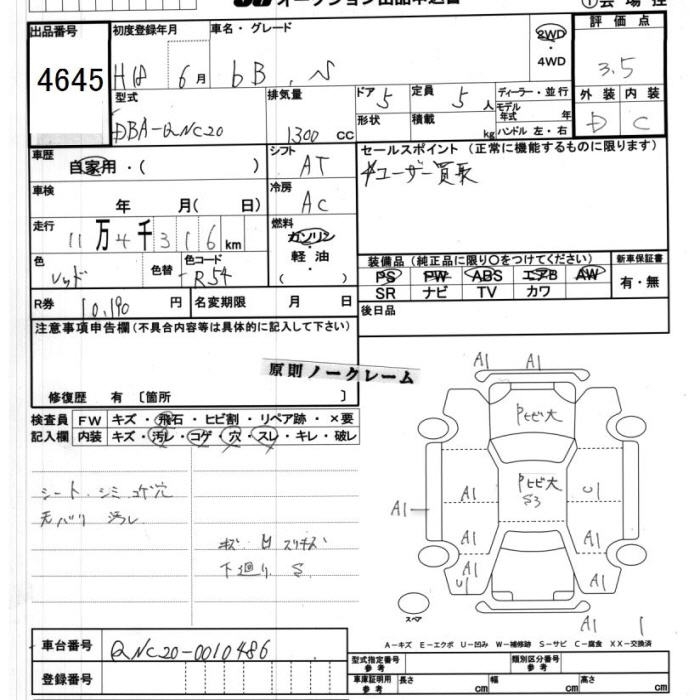 オークション出品申込書
出品番号 初度登録年月 車名・グレード 2WD ・ 4WD 評価点
4645 H18 6月 bB . S 3.5
型式 排気量 ドア 5 定員 5人 ディーラー・並行 外装 内装
DBA-QNC20 1300 CC 形状 積載 kg モデル年式 年 D C
ハンドル 左・右
車歴 シフト セールスポイント (正常に機能するものに限ります)
自家用・( ) AT ユーザー買取
車検 冷房
年 月( 日) AC
走行 燃料
11万4千316km ガソリン
軽油
・
( )
色 色替 色コード 装備品 (純正品に限り〇をつけてください) 新車保証書
レッド R54 PS PW ABS エアB AW 有・無
SR ナビ TV カワ
R券 10,190 円 名変期限 月 日 後日品
注意事項申告欄 (不具合内容等は具体的に記入して下さい)
原則ノークレーム
修復歴 有 〔箇所 〕
検査員 FW キズ・飛石・ヒビ割・リペア跡・×要
記入欄 内装 キズ・汚レ・コゲ・穴・スレ・キレ・破レ
シート シミ コゲ穴
天バリ 汚レ
キズ スリキズ
下廻り S
A1 A1
Pヒビ大
A1 A1
Pヒビ大
S3
A1 A1 U1
A1 A1
A1 U1 A1
スペア
A1 1
A-キズ E-エクボ U-凹み W-補修跡 S-サビ C-腐食 XX-交換済
車台番号 QNC20-0010486
型式指定番号 参考 類別区分番号 参考
登録番号 車庫証明用 参考 長さ cm 幅 cm 高さ cm